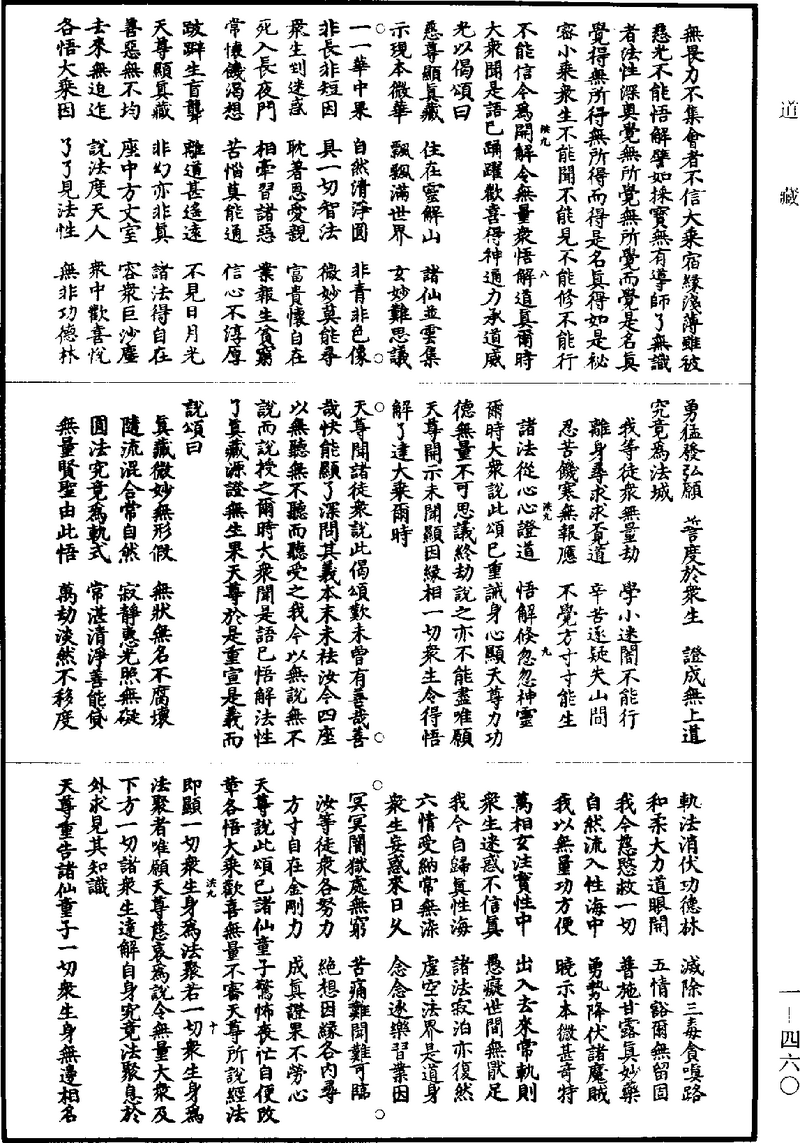 道藏
一—四六〇
無畏力不集會者不信大乘宿緣淺薄雖彼
慈光不能悟解譬如採寶無有導師了無識
者法性深奧覺無所覺無所覺而覺是名真
覺得無所得無所得而得是名真得如是祕
密小乘眾生不能聞不能見不能修不能行
不能信今為開解令無量眾悟解道真爾時
大眾聞是語已踊躍歡喜得神通力承道威
光以偈頌曰
慈尊顯真藏 住在靈解山 諸仙並雲集
示現本微華 飄飄滿世界 玄妙難思議
一一華中果 自然清淨圓 非青非色像
非長非短因 具一切智法 微妙莫能尋
眾生剉迷惑 耽著恩愛親 富貴懷自在
死入長夜門 相牽習諸惡 業報生貧窮
常懷饑渴想 苦惱莫能通 信心不淳厚
跛躃生盲聾 離道甚遙遠 不見日月光
天尊顯真藏 非幻亦非真 諸法得自在
善惡無不均 座中方丈室 容眾巨沙塵
去來無迫迮 說法度天人 眾中歡喜悅
各悟大乘因 了了見法性 無非功德林
勇猛發弘願 誓度於眾生 證成無上道
究竟為法城
我等徒眾無量劫 學小迷闇不能行
離身尋求求覓道 辛苦遂疑失山間
忍苦饑寒無報應 不覺方寸寸能生
諸法從心心證道 悟解倏忽忽神靈
爾時大眾說此頌已重誠身心顯天尊力功
德無量不可思議終劫說之亦不能盡唯願
天尊開示未聞顯因緣相一切眾生令得悟
解了達大乘爾時
天尊聞諸徒眾說此偈頌歎未曾有善哉善
哉快能顯了深問其義本末未祛汝今四座
以無聽無不聽而聽受之我今以無說無不
說而說授之爾時大眾聞是語已悟解法性
了真藏源證無生果天尊於是重宣是義而
說頌曰
真藏微妙無形假 無狀無名不腐壞
隨流混合常自然 寂靜惠光照無礙
圓法究竟為軌式 常湛清淨善能貸
無量賢聖由此悟 萬劫淡然不移度
軌法消伏功德林 減除三毒貪嗔路
和柔大力道眼開 五情豁爾無留固
我今慈愍救一切 普施甘露真妙藥
自然流入性海中 勇勢降伏諸魔賊
我以無量功方便 曉示本微甚奇特
萬相玄注實性中 出入去來常軌則
眾生迷惑不信真 愚癡世間無厭足
我今自歸真性海 諸法寂泊亦復然
六情受納常無滌 虛空法界是道身
眾生妄惑來日久 念念遂樂習業因
冥冥闇獄處無窮 苦痛難聞難可臨
汝等徒眾各努力 絕想因緣各內尋
方寸自在金剛力 成真證果不勞心
天尊說此頌已諸仙童子驚怖喪忙自便改
章各悟大乘歡喜無量不審天尊所說經法
即顯一切眾生身為法聚若一切眾生身為
法聚者唯願天尊慈哀為說令無量大眾及
下方一切諸眾生達解自身究竟法聚息於
外求見其知識
天尊重告諸仙童子一切眾生身無邊相名